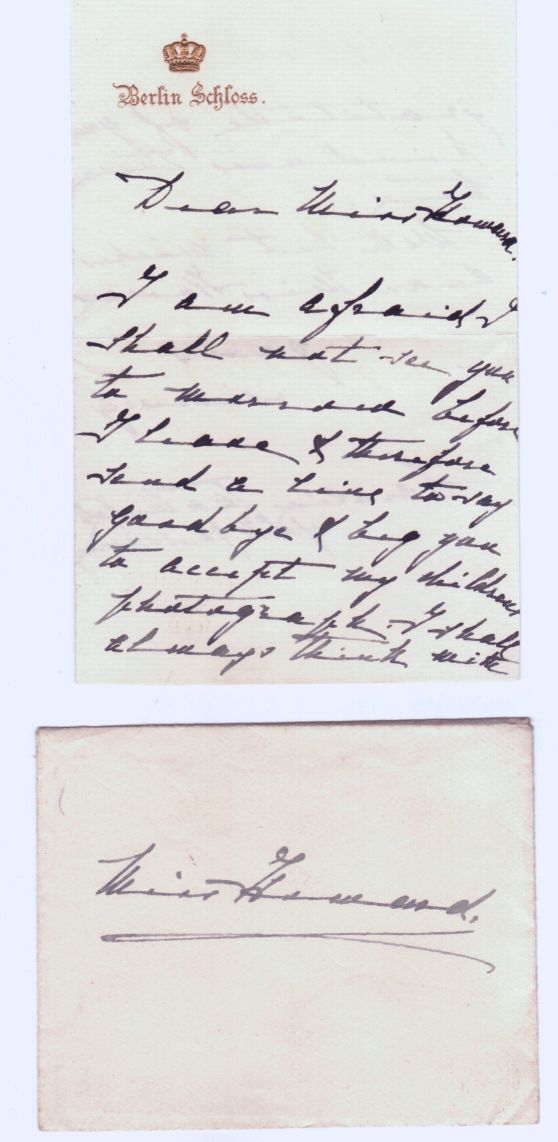 Berlin Schloss.
Dear Miss Howard.
I am afraid I
shall not see you
to morrow before
I leave & therefore
send a line to say
goodbye & beg you
to accept my childrens
photograph. I shall
always think with
Miss Howard.